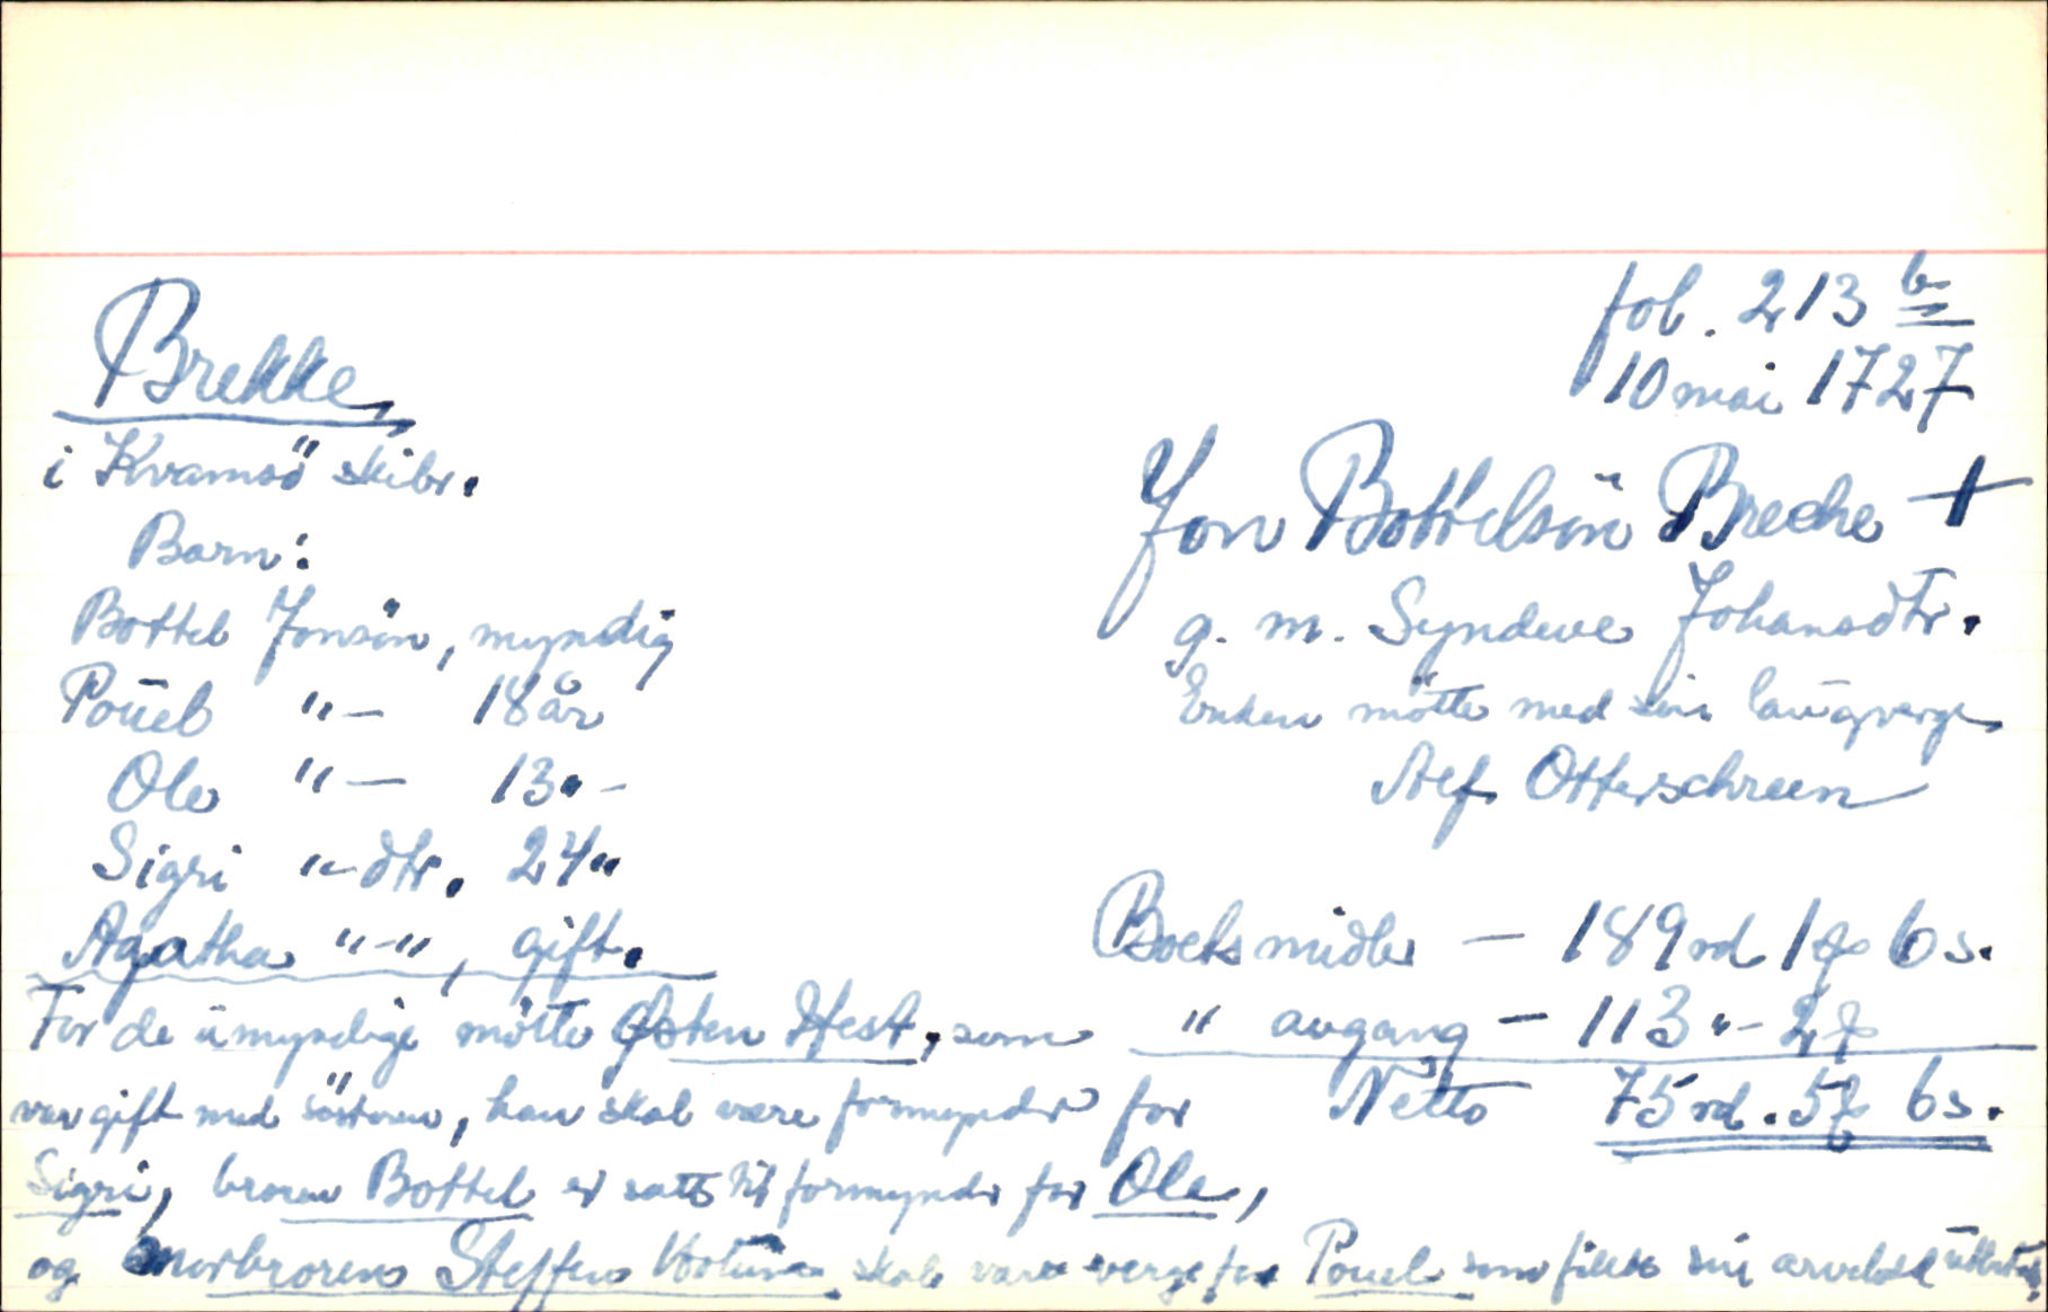 fol. 213 b
10 mai 1727
Brekke,
i Kvamsö skibr.
Jon Bottelsön Breche +
g. m. Syndeve Johansdtr.
Enken mötte med sin laugverge
Alf Otterschreen
Barn:
Bottel Jonsön, myndig
Pouel "– 18 år
Ole "– 13 "–
Sigri "–dtr. 24 "
Agatha "–", gift.
Boets midler – 189 rd 1 ₰ 6 s.
" avgang – 113 "– 2 ₰
Netto 75 rd. 5 ₰ 6 s.
For de umyndige mötte Østen Hest, som
var gift med sösteren, han skal være formynder for
Sigri, broren Bottel er satt til formynder for Ole,
og morbroren Steffen skal være verge for Pouel som fikk sin arvelodd